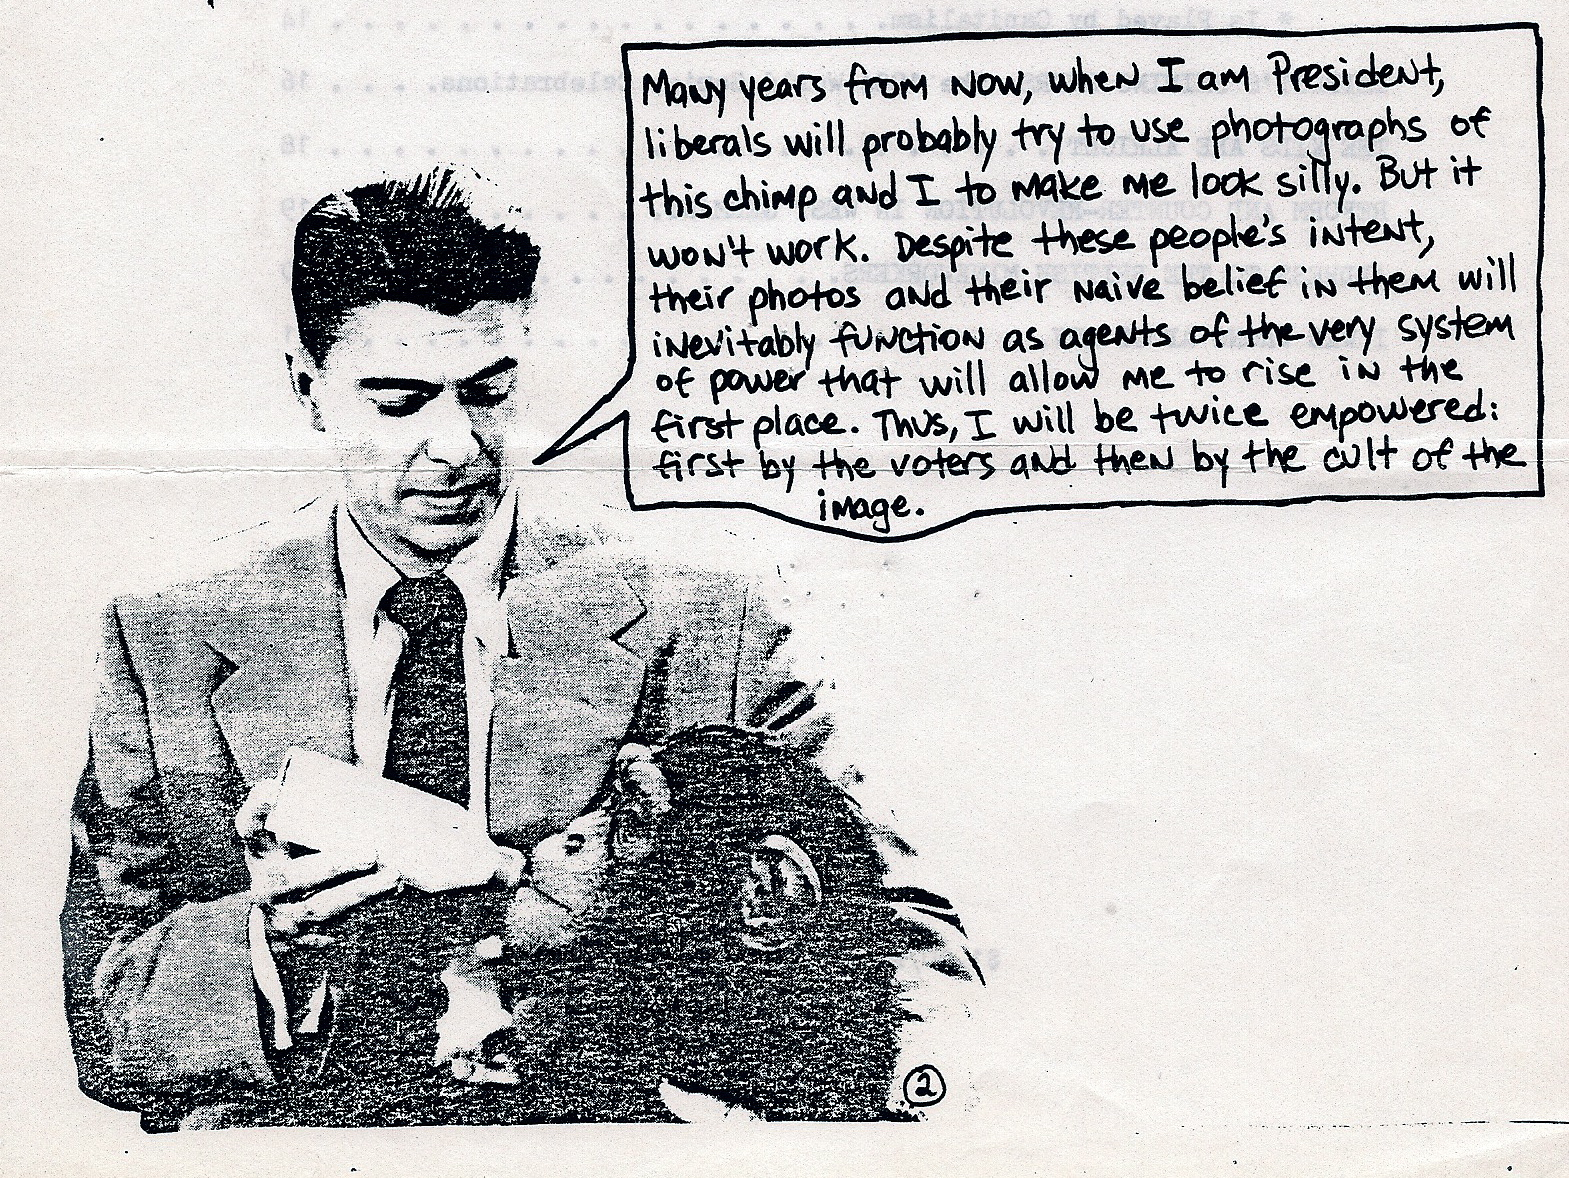 Many years from now, when I am President,
liberals will probably try to use photographs of
this chimp and I to make me look silly. But it
won't work. Despite these people's intent,
their photos and their naive belief in them will
inevitably function as agents of the very system
of power that will allow me to rise in the
first place. Thus, I will be twice empowered:
first by the voters and then by the cult of the
image.
2